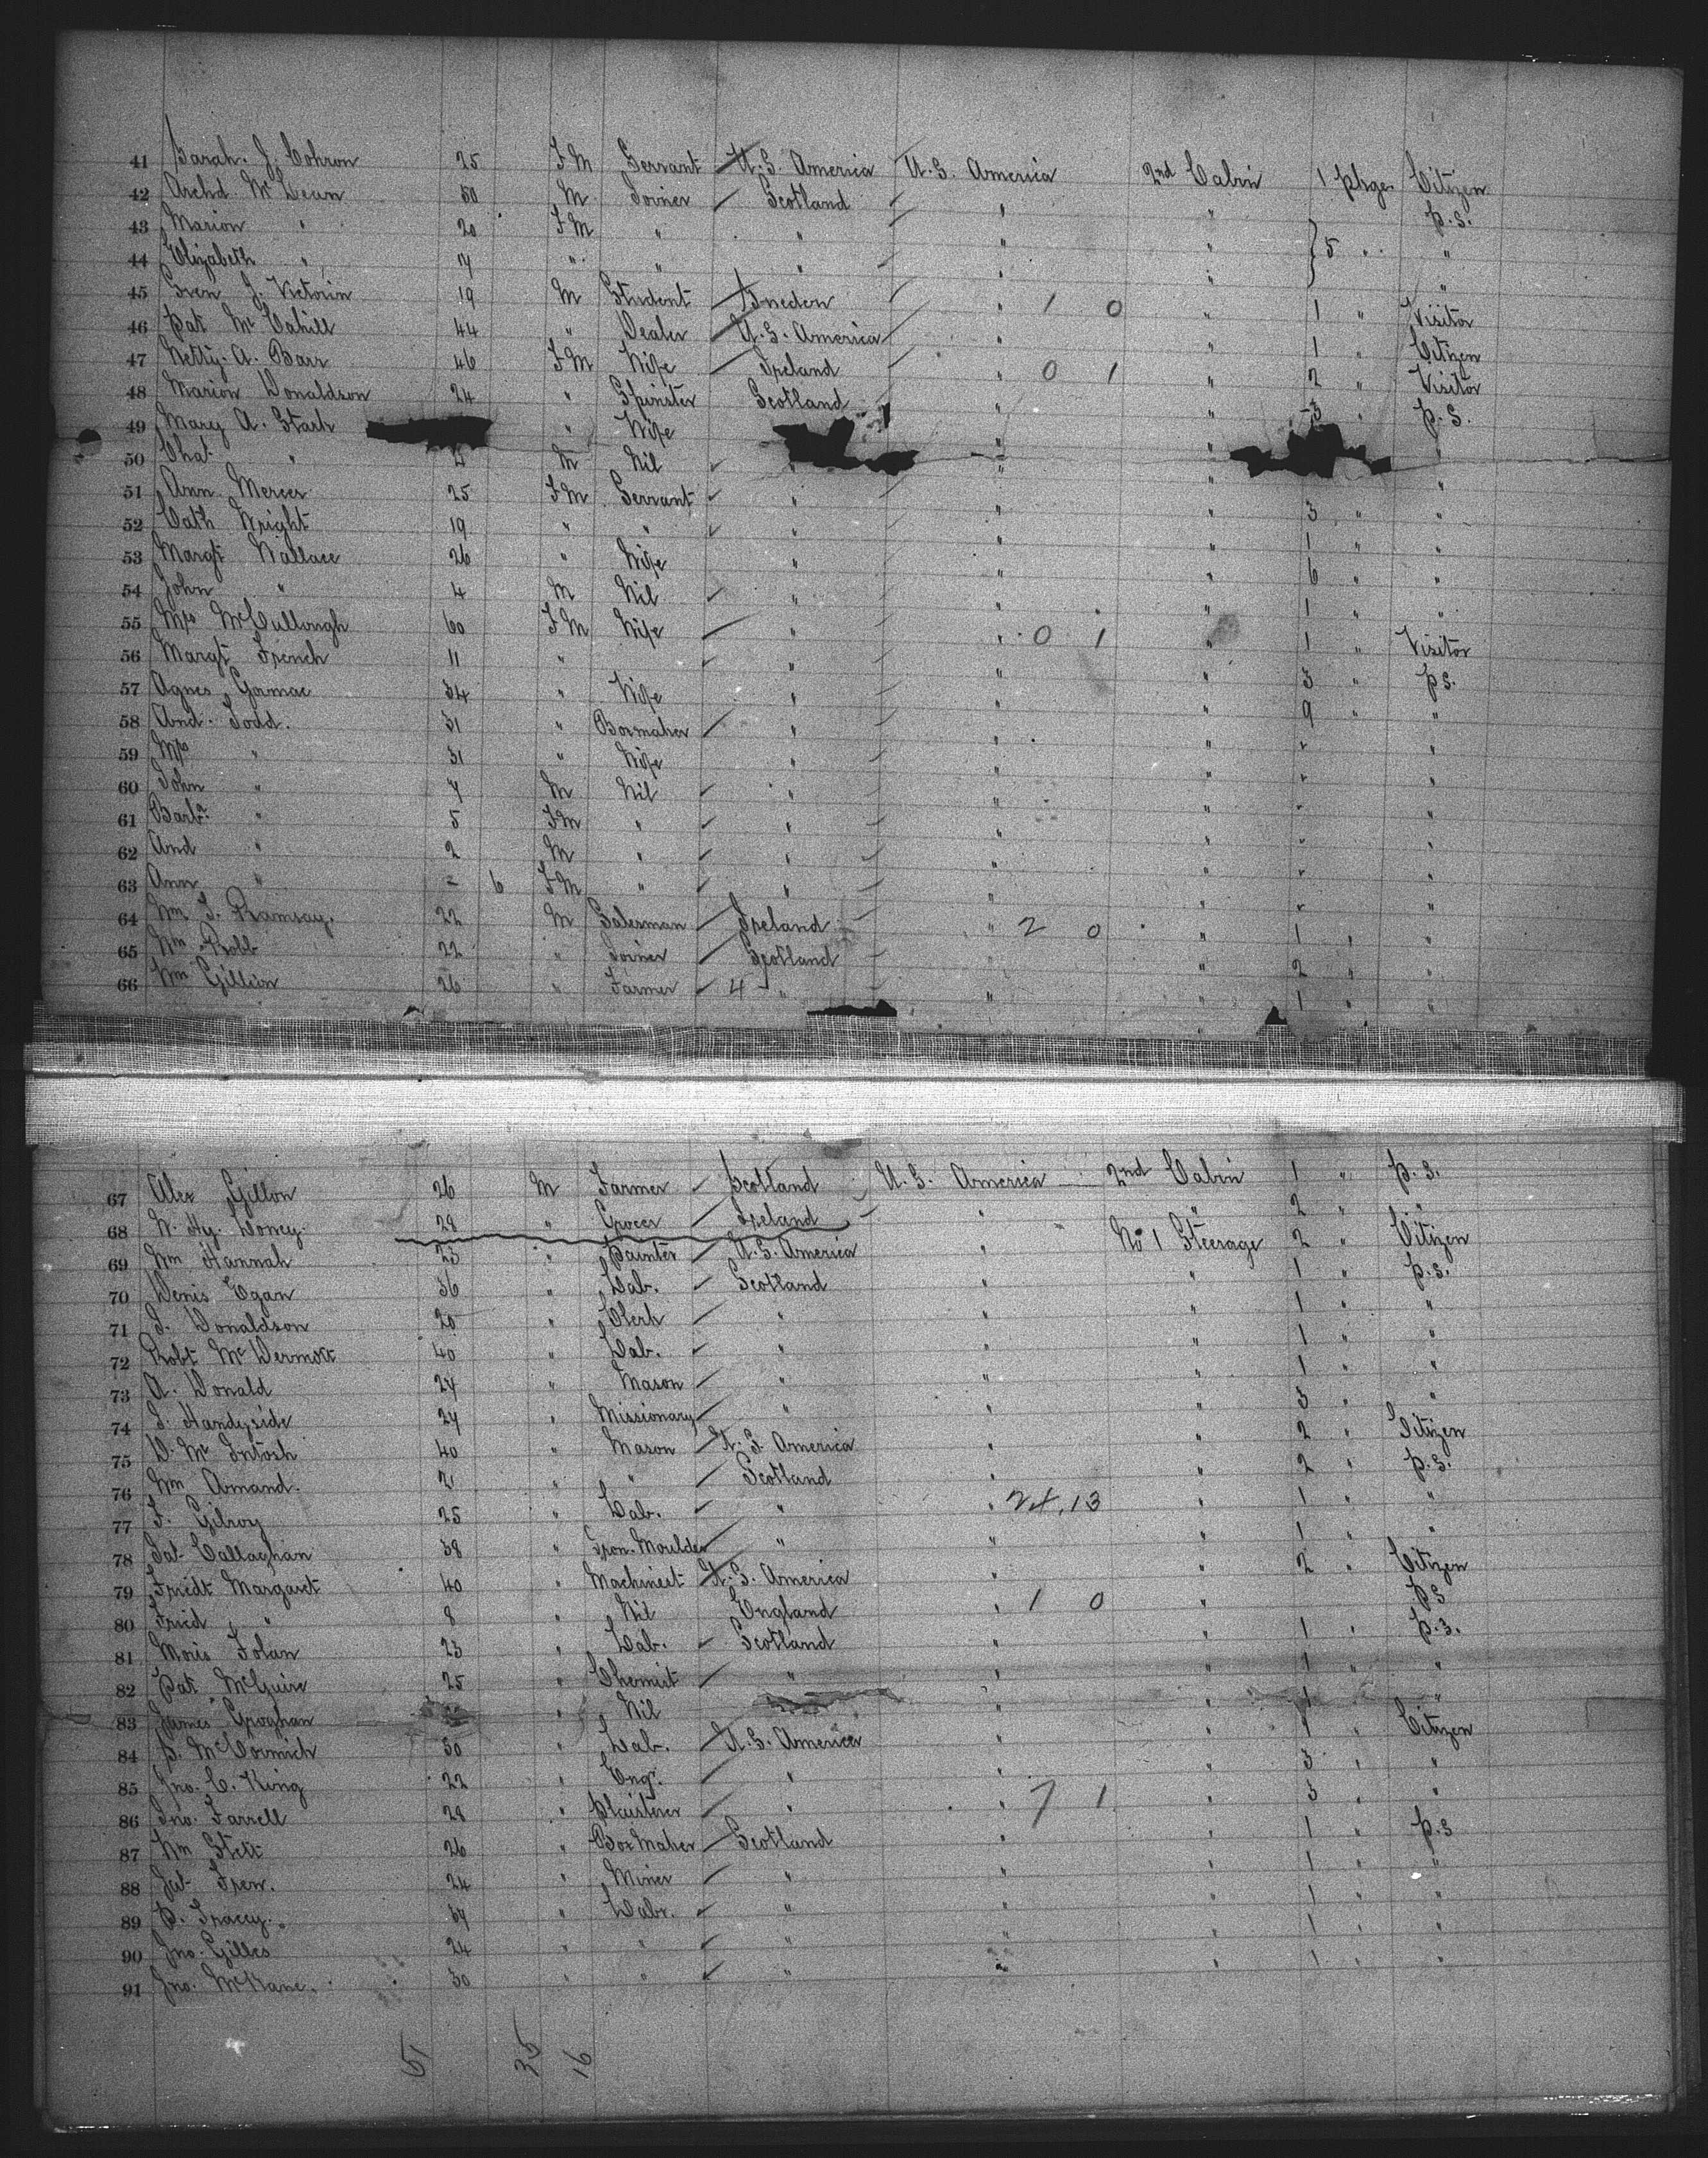 41 Sarah. J. Cohron 25 F M Servant U. S. America U. S. America 2nd Cabin 1 pkge Citizen
42 Archd McLean 50 M Joiner Scotland " " p. s.
43 Marion " 20 F M " " " " } 5 " "
44 Elizabeth " 7 " " " " " "
45 Sven J. Victorin 19 M Student Sweden " 1 0 " 1 " Visitor
46 Pat McCahill 44 " Dealer U. S. America " " 1 " Citizen
47 Netty. A. Barr 46 F M Wife Ireland " 0 1 " 2 " Visitor
48 Marion Donaldson 24 " Spinster Scotland " " 3 " p. s.
49 Mary A. Stark " Wife " " "
50 Chat " M Nil " " " "
51 Ann Mercer 25 F M Servant " " " 3 " "
52 Cath Wright 19 " " " " " 1 " "
53 Margt Wallace 26 " Wife " " " 6 " "
54 John " 4 M Nil " " " 1 " "
55 Mrs McCullough 60 F M Wife " " 0 1 " 1 " Visitor
56 Margt French 11 " " " " 3 " p s.
57 Agnes Gormac 34 " Wife " " " 9 " "
58 And. Todd. 31 " Boxmaker " " " " "
59 Mrs " 31 " Wife " " " " "
60 John " 7 M Nil " " " " "
61 Barbra " 5 F M " " " " " "
62 And " 2 M " " " " " "
63 Ann " - 6 F M " " " " " "
64 Wm J. Ramsay. 22 M Salesman Ireland " 2 0 " 1 " "
65 Wm Robb 22 " Joiner Scotland " " 2 " "
66 Wm Gillion 26 " Farmer 4 " " " 1 " "
67 Alex Gillon 26 M Farmer Scotland U. S. America 2nd Cabin 1 " p. s.
68 W. Hy. Doney. 28 " Grocer Ireland " " 2 " "
69 Wm Hannah 23 " Painter U. S. America " No 1 Steerage 2 " Citizen
70 Denis Egan 36 " Lab. Scotland " " 1 " p. s.
71 J. Donaldson 20 " Clerk " " " 1 " "
72 Robt McDermott 40 " Lab. " " " 1 " "
73 A. Donald 24 " Mason " " " 1 " "
74 J. Handyside 24 " Missionary " " " 3 " "
75 D. McIntosh 40 " Mason U. S. America " " 2 " Citizen
76 Wm Amand. 21 " " Scotland " " 2 " p. s.
77 F. Gilroy 25 " Lab. " " 24.13 " 1 " "
78 Pat Callaghan 38 " Iron. Moulder " " " 1 " "
79 Friedt Margaret 40 " Machinest U. S. America " " 2 " Citizen
80 Fried " 8 " Nil England " 1 0 " p s
81 Moris Folan 23 " Lab. Scotland " " 1 " p. s.
82 Pat McGuire 25 " Chemist " " " 1 " "
83 James Groghan " Nil " " 1 "
84 P. McCormick 30 " Lab. U. S. America " " 1 " Citizen
85 Jno. C. King 22 " Engr. " " " 3 " "
86 Jno. Farrell 28 " Plaisterer " " 7 1 " 3 " "
87 Wm Stett 26 " Box Maker Scotland " " 1 " p. s
88 Frew. 24 " Miner " " " 1 " "
89 P. Tracey. 37 " Labr. " " " 1 " "
90 Jno. Gilles 24 " " " " " 1 " "
91 Jno. McKane. 30 " " " " " 1 " "
51 35 16